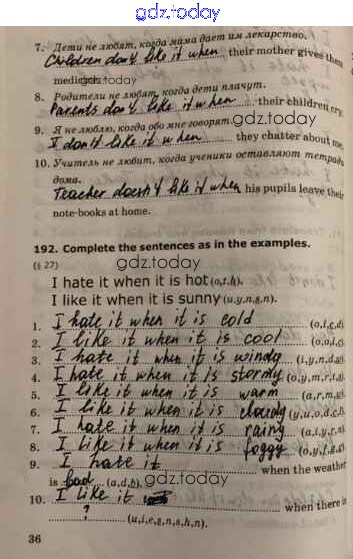 gdz.today
7. Дети не любят, когда мама дает им лекарство.
Children don't like it when their mother gives them
medicine. gdz.today
8. Родители не любят, когда дети плачут.
Parents don't like it when their children cry.
9. Я не люблю, когда обо мне говорят. gdz.today
I don't like it when they chatter about me.
10. Учитель не любит, когда ученики оставляют тетради
дома.
Teacher doesn't like it when his pupils leave their
note-books at home.
gdz.today
192. Complete the sentences as in the examples.
(§ 27) gdz.today
I hate it when it is hot (o,t,h).
I like it when it is sunny (u,y,n,s,n).
1. I hate it when it is cold (o,l,c,d)
2. I like it when it is cool (o,o,l,c)
3. I hate it when it is windy (i,y,n,d,w)
4. I hate it when it is stormy (o,y,m,r,t,s)
5. I like it when it is warm (a,r,m,w)
6. I like it when it is cloudy (y,u,o,d,c,l)
7. I hate it when it is rainy (a,i,y,r,n)
8. I like it when it is foggy (o,y,f,g,g)
9. I hate it when the weather
is bad (a,d,b). gdz.today
10. I like it when there is
? (u,i,e,g,n,s,h,n).
36
gdz.today